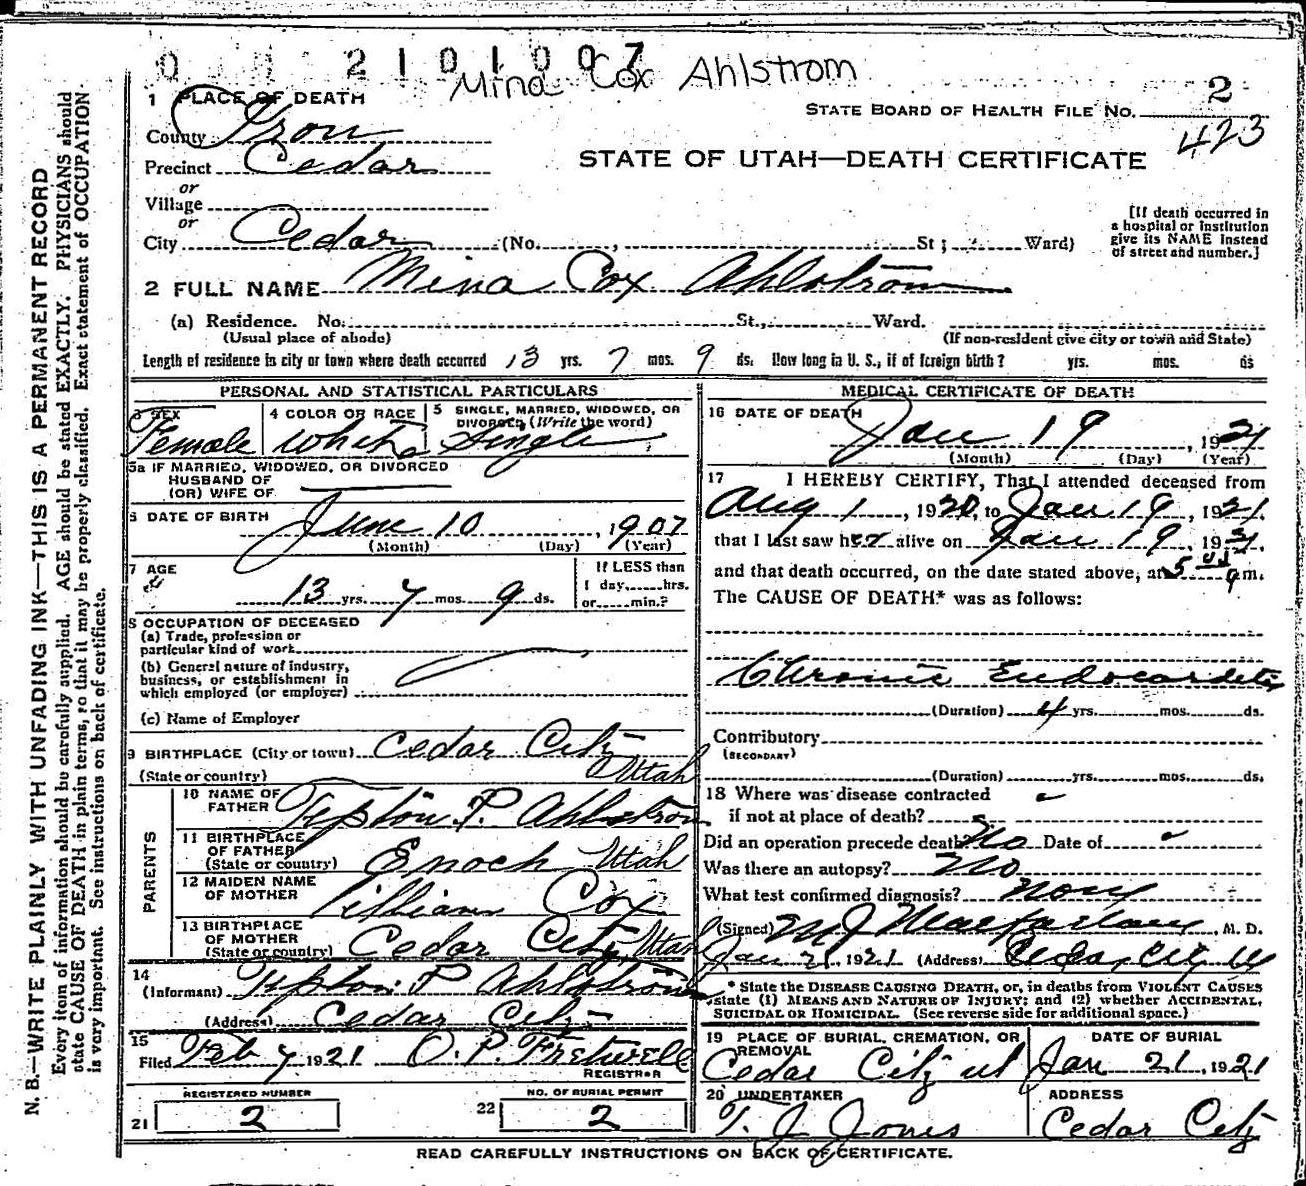 0 1 1 2 1 0 1 0 0 7
Mina Cox Ahlstrom
1 PLACE OF DEATH
STATE BOARD OF HEALTH FILE NO. 2
423
County Iron
STATE OF UTAH—DEATH CERTIFICATE
Precinct Cedar
or
Village
or
City Cedar (No. , St; Ward)
[If death occurred in
a hospital or institution
give its NAME instead
of street and number.]
2 FULL NAME Mina Cox Ahlstrom
(a) Residence. No. St., Ward.
(Usual place of abode) (If non-resident give city or town and State)
Length of residence in city or town where death occurred 13 yrs. 7 mos. 9 ds. How long in U. S., if of foreign birth? yrs. mos. ds
PERSONAL AND STATISTICAL PARTICULARS
3 SEX 4 COLOR OR RACE 5 SINGLE, MARRIED, WIDOWED, OR
DIVORCED (Write the word)
Female White Single
5a IF MARRIED, WIDOWED, OR DIVORCED
HUSBAND OF
(OR) WIFE OF
6 DATE OF BIRTH June 10, 1907
(Month) (Day) (Year)
7 AGE
13 yrs. 7 mos. 9 ds.
If LESS than
1 day, hrs.
or min.?
8 OCCUPATION OF DECEASED
(a) Trade, profession or
particular kind of work
(b) General nature of industry,
business, or establishment in
which employed (or employer)
(c) Name of Employer
9 BIRTHPLACE (City or town) Cedar City
(State or country) Utah
PARENTS
10 NAME OF
FATHER Tipton P. Ahlstrom
11 BIRTHPLACE
OF FATHER
(State or country) Enoch Utah
12 MAIDEN NAME
OF MOTHER Lillian Cox
13 BIRTHPLACE
OF MOTHER
(State or country) Cedar City, Utah
14
(Informant) Tipton P Ahlstrom
(Address) Cedar City
15
Filed Feb 7 1921 O. P. Fretwell
REGISTRAR
REGISTERED NUMBER NO. OF BURIAL PERMIT
21 2 22 2
MEDICAL CERTIFICATE OF DEATH
16 DATE OF DEATH
Jan 19, 1921
(Month) (Day) (Year)
17 I HEREBY CERTIFY, That I attended deceased from
Aug 1, 1920, to Jan 19, 1921,
that I last saw her alive on Jan 19, 1921,
and that death occurred, on the date stated above, at 5 m.
The CAUSE OF DEATH* was as follows:
Chronic Endocarditis
(Duration) 4 yrs. mos. ds.
Contributory
(SECONDARY)
(Duration) yrs. mos. ds.
18 Where was disease contracted
if not at place of death?
Did an operation precede death? No Date of
Was there an autopsy? No
What test confirmed diagnosis? none
(Signed) M J Macfarlane, M. D.
Jan 21, 1921 (Address) Cedar City Ut
* State the DISEASE CAUSING DEATH, or, in deaths from VIOLENT CAUSES
state (1) MEANS AND NATURE OF INJURY; and (2) whether ACCIDENTAL,
SUICIDAL OR HOMICIDAL. (See reverse side for additional space.)
19 PLACE OF BURIAL, CREMATION, OR
REMOVAL
Cedar City ut
DATE OF BURIAL
Jan 21, 1921
20 UNDERTAKER ADDRESS
T. J Jones Cedar City
READ CAREFULLY INSTRUCTIONS ON BACK OF CERTIFICATE.
N. B.—WRITE PLAINLY WITH UNFADING INK—THIS IS A PERMANENT RECORD
Every item of information should be carefully supplied. AGE should be stated EXACTLY. PHYSICIANS should
state CAUSE OF DEATH in plain terms, so that it may be properly classified. Exact statement of OCCUPATION
is very important. See instructions on back of certificate.